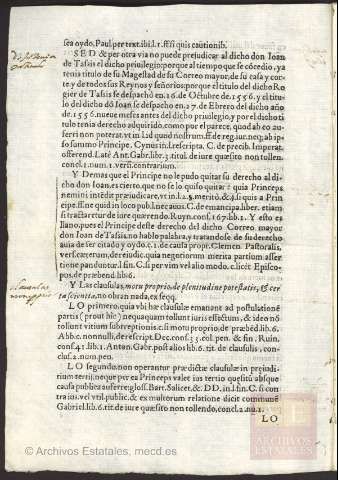 sea oydo, Paul. per text. ibi. l. 1. ff. si quis cautionib.
SED & por otra via no puede perjudicar al dicho don Ioan
de Tassis el dicho priuilegio: porque al tiempo que se cōcedio, ya
tenia titulo de su Magestad de su Correo mayor, de su casa y cor-
te y de todos sus Reynos y señorios: porque el titulo del dicho Ro
gier de Tassis se despachò en 16. de Octubre de 1556. y el titu-
lo del dicho dō Ioan se despacho en 27. de Ebrero del dicho año
de 1556. nueue meses antes del dicho priuilegio, y por el dicho ti
tulo tenia derecho adquirido, como por el parece, quod ab eo au-
ferri non poterat, vt in l. id quod nostrum, ff. de reg. iur. neq; ab ip-
so summo Principe. Cynus in l. rescripta. C. de precib. Imperat.
offerend. Latè Ant. Gabr. lib. 3. titul. de iure quæsito non tollen.
concl. 1. num. 1. vers. contrarium.
Y Demas que el Principe no le pudo quitar su derecho al di-
cho don Ioan, es cierto, que no se lo quiso quitar: ê quia Princeps
nemini intēdit præiudicare, vt in l. 2. §. meritò, & §. si quis a Prin
cipe. ff. ne quid in loco publ. nec auus. C. de emancip. liber. etiam
si tractaretur de iure quærendo. Ruyn. cons. 167. lib. 1. Y esto es
llano, pues el Principe deste derecho del dicho Correo mayor
don Ioan de Tassis, no hablo palabra, y tratandose de su derecho
auia de ser citado y oydo. c. 1. de causa propr. Clemen. Pastoralis,
vers. cæterum, de re iudic. quia negotiorum merita partium asser
tione panduntur. l. fin. C. si per vim vel alio modo. c. licèt Episco-
pus, de præbend. lib. 6.
Y Las clausulas, motu proprio, de plenitudine potestatis, & cer
ta scientia, no obran nada, ex seqq.
LO primero, quia vbi hæ clausulæ emanant ad postulationē
partis (prout hîc) nequaquam tollunt iuris effectum, & ideo nō
tollunt vitium subreptionis. c. si motu proprio, de præbēd. lib. 6.
Abb. c. nonnulli, de rescript. Dec. cons. 35. col. pen. & fin. Ruin.
cons. 41. lib. 1. Anton. Gabr. post alios lib. 6. tit. de clausulis, con-
clus. 1. num. pen.
LO segundo, non operantur prædictæ clausulæ in preiudi-
rium tertij, neque per ex Princeps valet ius tertio quęsitū absque
causa publica auferre. gloss. Bart. Salicet. & DD. in l. fin. C. si con
tra ius. vel vtil. public. & ex multorum relatione dicit commune
Gabriel. lib. 6. tit. de iure quæsito non tollendo, concl. 2. nu. 1.
LO
ARCHIVOS
ESTATALES
© Archivos Estatales, mecd.es